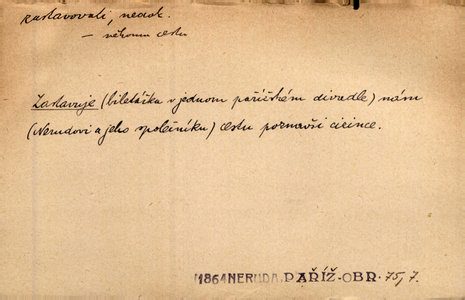 zastavovati, nedok.
— někomu cestu
Zastavuje (biletářka v jednom pařížském divadle) nám
(Nerudovi a jeho společníku) cestu poznavši cizince.
1864 NERUDA, PAŘÍŽ-OBR. 75, 7.